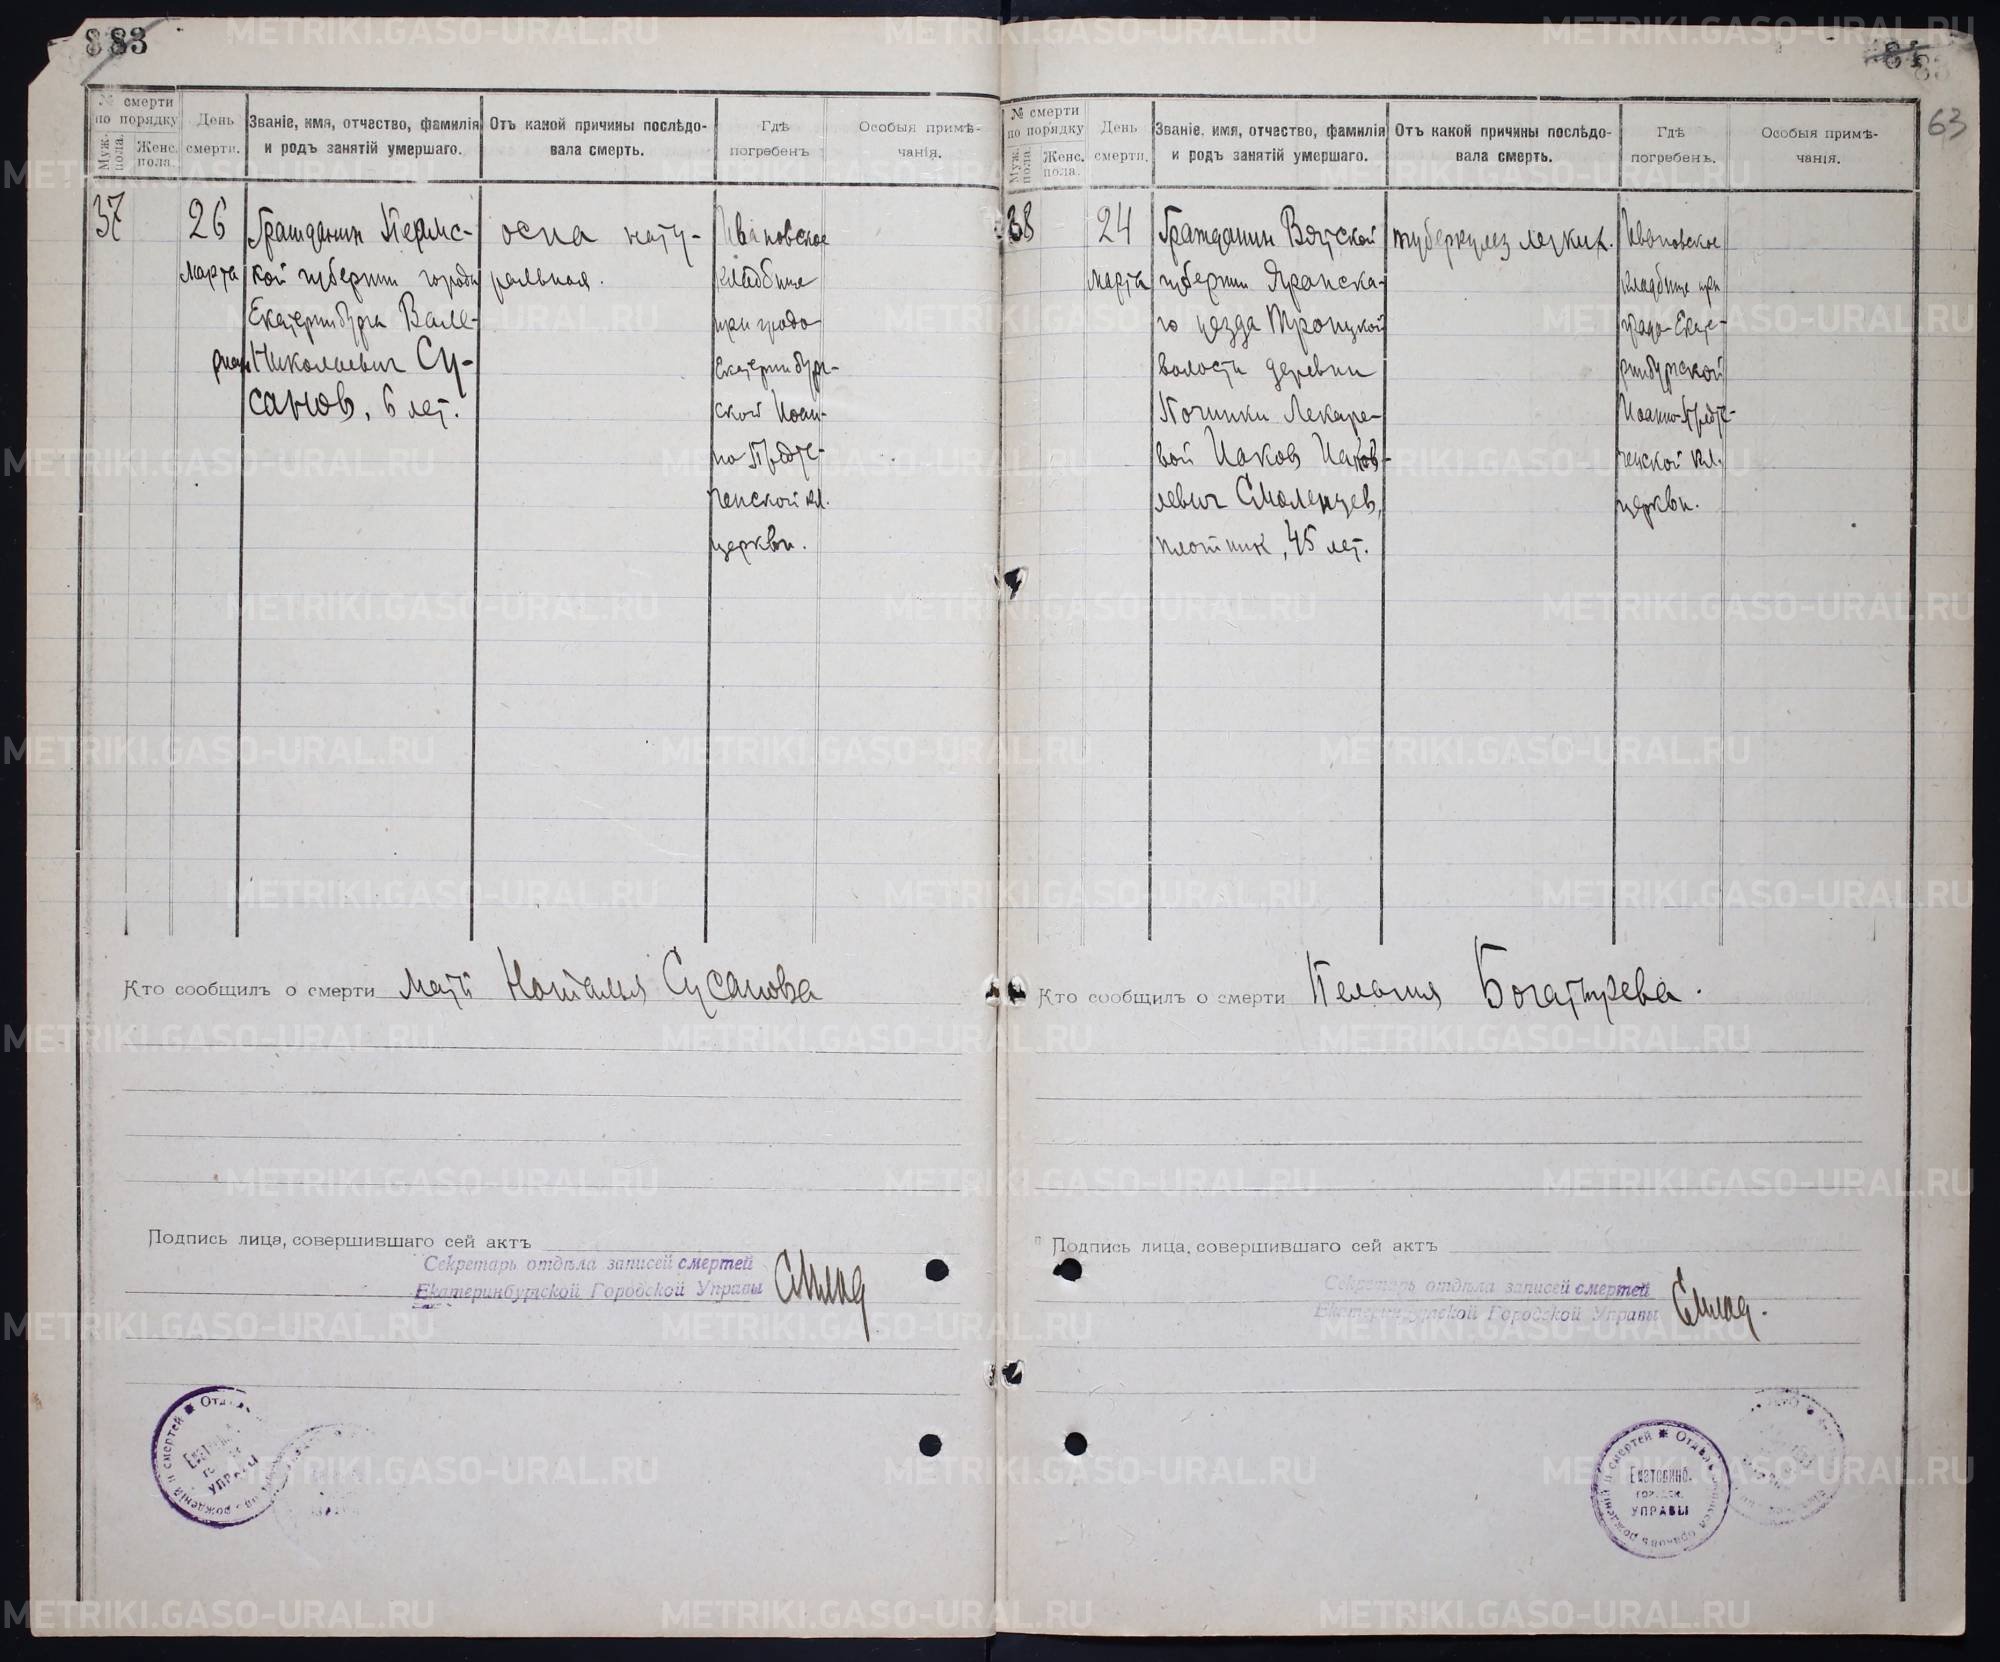 83
№ смерти
по порядку
Муж. пола.
Женс. пола.
День
смерти.
Званіе, имя, отчество, фамилія
и родъ занятій умершаго.
Отъ какой причины послѣдо-
вала смерть.
Гдѣ
погребенъ
Особыя примѣ-
чанія.
37
26
марта
Гражданин Пермс-
кой губернии города
Екатеринбурга Вале-
риан Николаевич Су-
санов, 6 лет.
оспа нату-
ральная.
Ивановское
кладбище
при градо-
Екатеринбург-
ской Иоан-
но Предте-
ченской кл.
церкви.
Кто сообщилъ о смерти мать Наталья Сусанова
Подпись лица, совершившаго сей актъ
Секретарь отдѣла записей смертей
Екатеринбургской Городской Управы
63
№ смерти
по порядку
Муж. пола.
Женс. пола.
День
смерти.
Званіе, имя, отчество, фамилія
и родъ занятій умершаго.
Отъ какой причины послѣдо-
вала смерть.
Гдѣ
погребенъ.
Особыя примѣ-
чанія.
38
24
марта
Гражданин Вятской
губернии Яранска-
го уезда Троицкой
волости деревни
Починки Лекаре-
вой Иаков Иаков-
левич Смоленцев,
плотник, 45 лет.
туберкулез легких.
Ивановское
кладбище при
градо-Екате-
ринбургской
Иоанно-Предте-
ченской кл.
церкви.
Кто сообщилъ о смерти Пелагия Богатырева.
Подпись лица, совершившаго сей актъ
Секретарь отдѣла записей смертей
Екатеринбургской Городской Управы
Екатеринб.
городск.
УПРАВЫ
METRIKI.GASO-URAL.RU